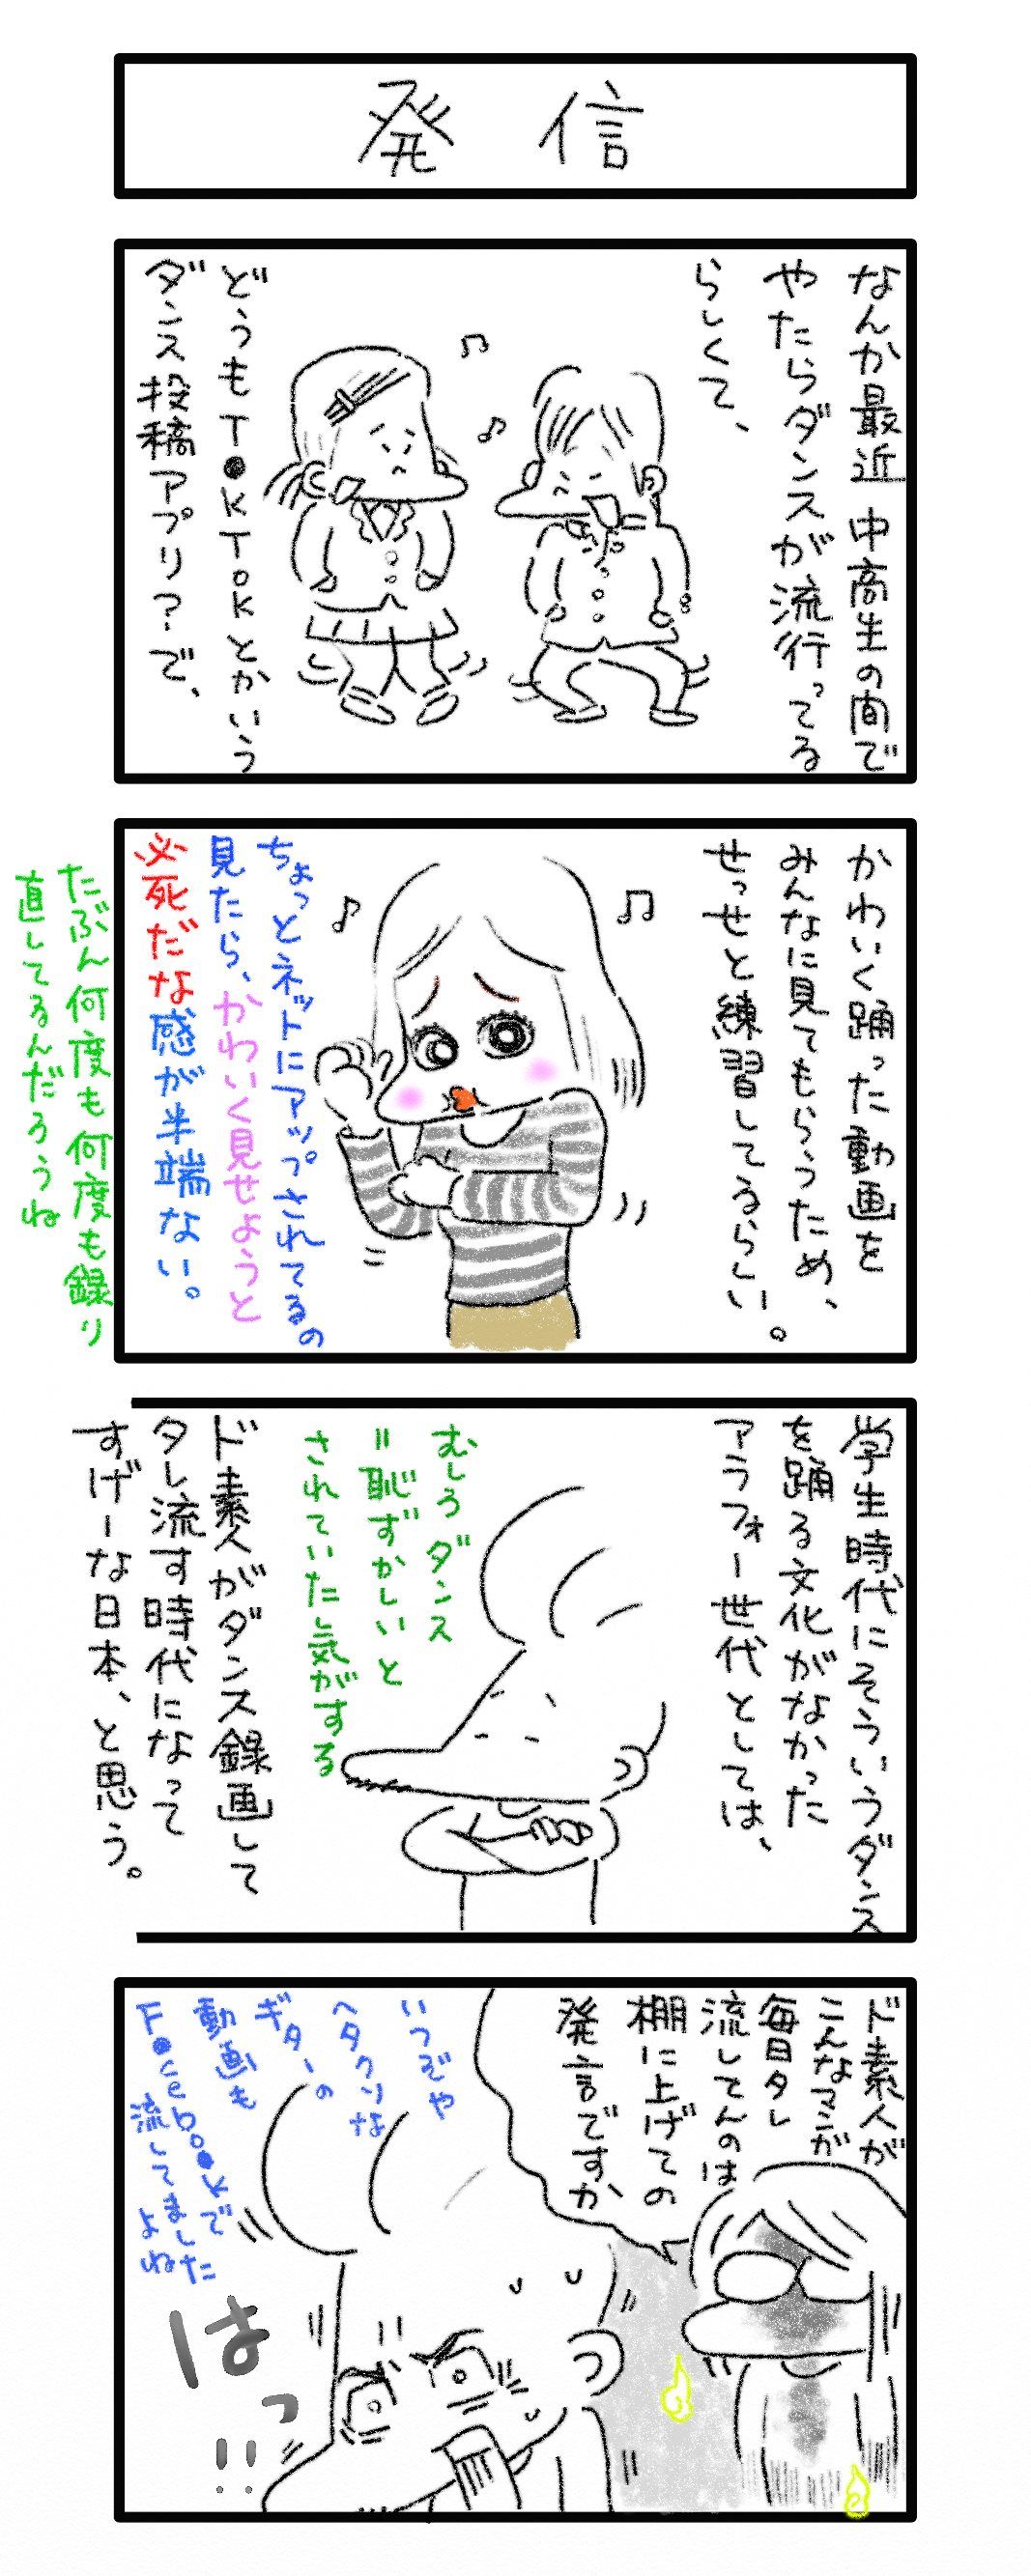 発信
なんか最近中高生の間で
やたらダンスが流行ってる
らしくて、
どうもT●kTokとかいう
ダンス投稿アプリ？で、
かわいく踊った動画を
みんなに見てもらうため、
せっせと練習してるらしい。
ちょっとネットにアップされてるの
見たら、かわいく見せようと
必死だな感が半端ない。
たぶん何度も何度も録り
直してるんだろうね
学生時代にそういうダンス
を踊る文化がなかった
アラフォー世代としては、
むしろダンス
＝恥ずかしいと
されていた気がする
ド素人がダンス録画して
タレ流す時代になって
すげーな日本、と思う。
ド素人が
こんなマンガ
毎日タレ
流してんのは
棚に上げての
発言ですか、
いつぞや
ヘタクソな
ギターの
動画も
F●cebo●kで
流してました
よね
はっ!!